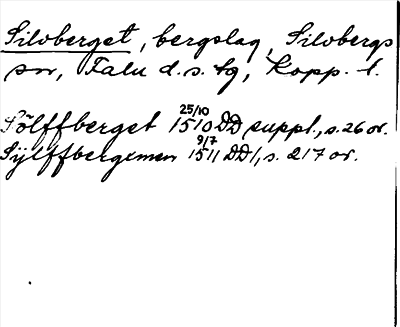 Silvberget, bergslag, Silvbergs
sn, Falu d.s. tg, Kopp. l.
Sölffberget 25/10 1510 DD suppl., s. 26 or.
Sÿlffbergxmen 9/7 1511 DD 1, s. 217 or.